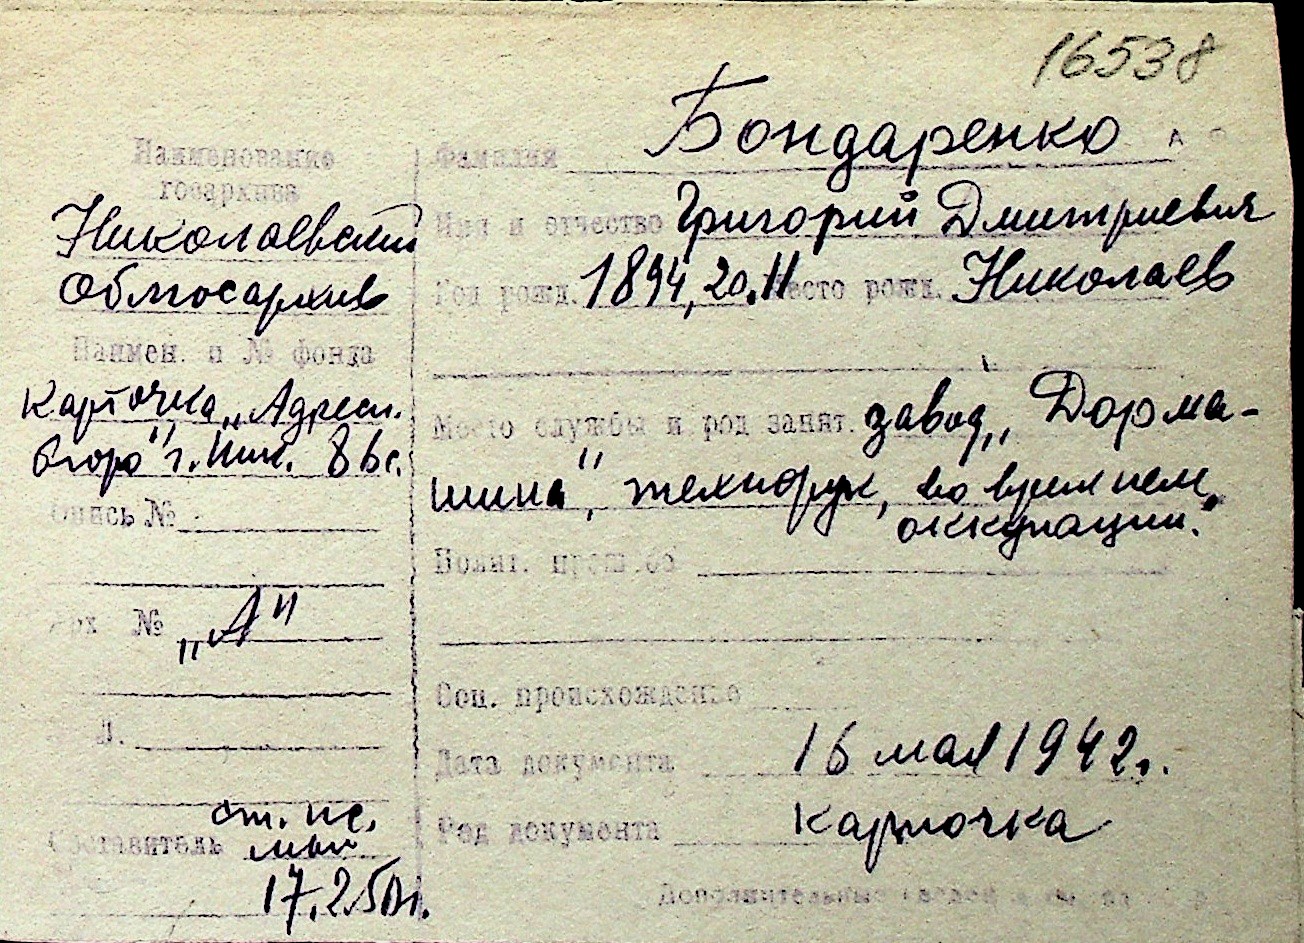 16538
Наименование
госархива
Николаевский
Облгосархив
Наимен. и № фонда
Карточка „Адресн.
бюро" г. Ник.
Опись №
Арх №
„А"
Л.
Составитель
17.2.50г.
Фамилия Бондаренко
Имя и отчество Григорий Дмитриевич
Год рожд. 1894, 20.II Место рожд. Николаев
Место службы и род занят. завод „Дорма-
шина", технорук, во врем нем.
оккупации.
Полит. прошлое
Соц. происхождение
Дата документа 16 мая 1942г.
Род документа карточка
Дополнительные